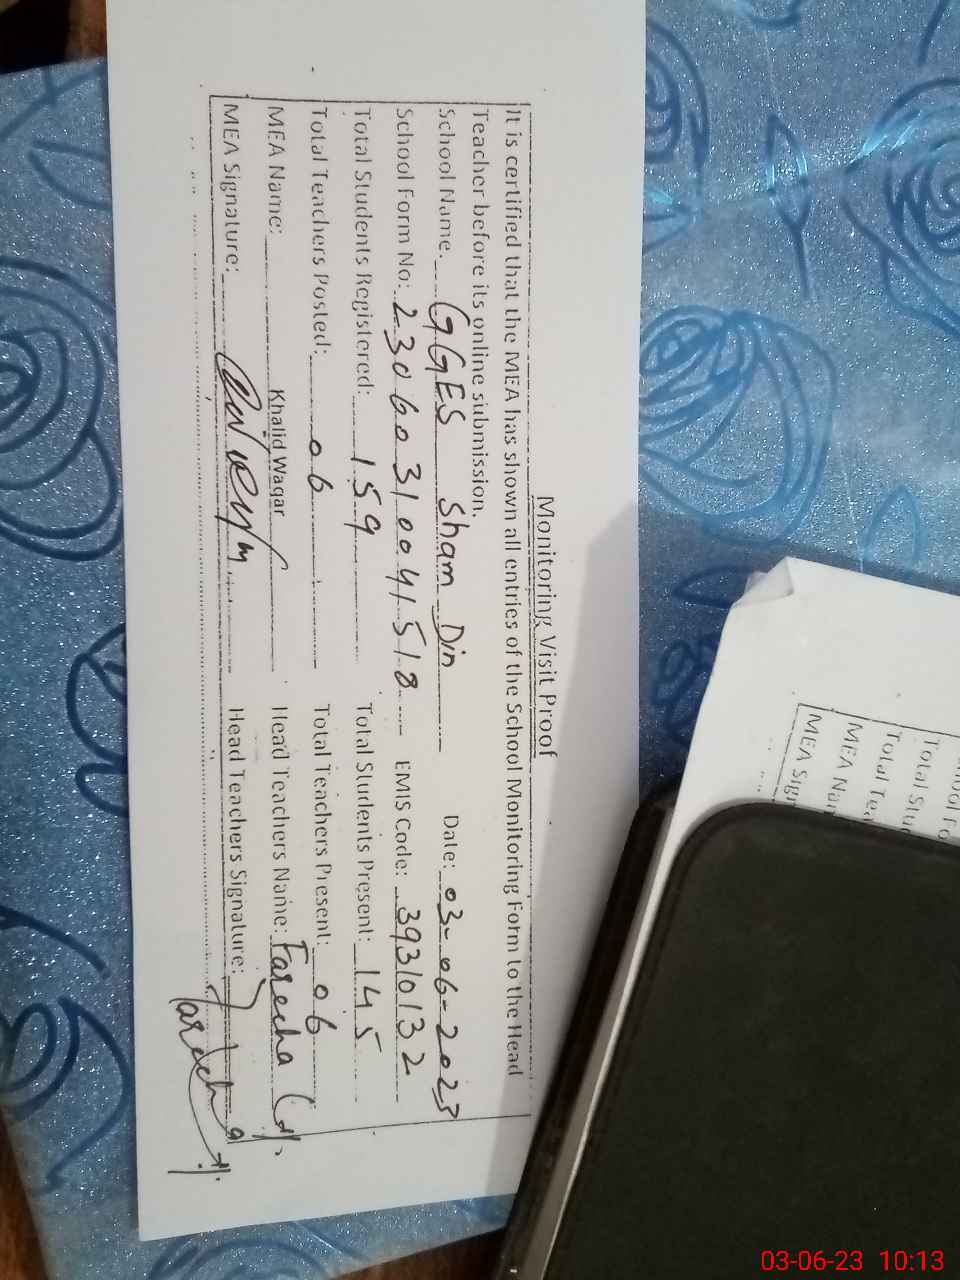 Monitoring Visit Proof
It is certified that the MEA has shown all entries of the School Monitoring Form to the Head
Teacher before its online submission.
School Name. GGES Sham Din Date: 03-06-2023
School Form No: 23060310041518 EMIS Code: 39310132
Total Students Registered: 159 Total Students Present: 145
Total Teachers Posted: 06 Total Teachers Present: 06
MEA Name: Khalid Waqar Head Teachers Name: Fareeha
MEA Signature: Head Teachers Signature: Fareeha
Total Stu
Total Tea
MEA Nam
MEA Sign
03-06-23 10:13